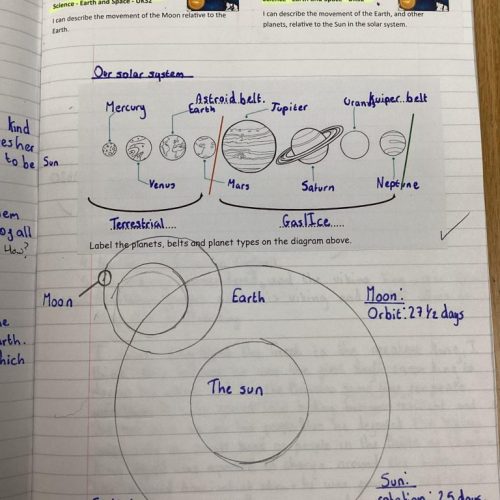 Science - Earth and Space - UKS2
I can describe the movement of the Moon relative to the
Earth.
I can describe the movement of the Earth, and other
planets, relative to the Sun in the solar system.
Our solar system
Mercury
Earth
Astroid belt.
Jupiter
Uranus
Kuiper belt
Sun
Venus
Mars
Saturn
Neptune
Terrestrial
Gas/Ice
Label the planets, belts and planet types on the diagram above.
Moon
Earth
Moon:
Orbit: 27 1/2 days
The sun
Sun:
rotation: 25 days
kind
to be
of all
How?
which